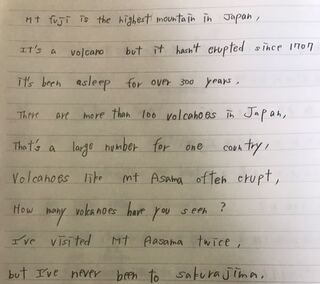 Mt Fuji is the highest mountain in Japan,
It's a volcano but it hasn't erupted since 1707
it's been asleep for over 300 years.
There are more than 100 volcanoes in Japan,
That's a large number for one country,
Volcanoes like Mt Asama often erupt,
How many volcanoes have you seen?
I've visited Mt Aasama twice,
but I've never been to sakurajima.